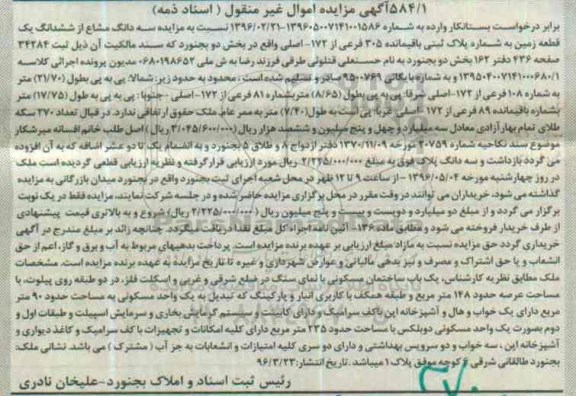 ۵۸۴/۱آگهی مزایده اموال غیر منقول ( اسناد ذمه)
برابر درخواست بستانکار وارده به شماره ۱۳۹۶۰۵۰۰۷۱۴۱۰۰۱۵۸۶-۱۳۹۶/۰۲/۲۱ نسبت به مزایده سه دانگ مشاع از ششدانگ یک
قطعه زمین به شماره پلاک ثبتی باقیمانده ۳۰۵ فرعی از ۱۷۲- اصلی واقع در بخش دو بجنورد که سند مالکیت آن ذیل ثبت ۳۴۲۸۴
صفحه ۴۳۶ دفتر ۱۶۲ بخش دو بجنورد به نام حسنعلی قتلوئی طرقی فرزند رضا به ش ملی ۰۶۸۰۱۹۸۶۵۲ مدیون پرونده اجرائی کلاسه
۱۳۹۵۰۴۰۰۷۱۴۱۰۰۰۶۸۰/۱ و به شماره بایگانی ۹۵۰۰۷۶۹ صادر و تسلیم شده است ، محدود به حدود زیر: شمالا: پی به پی بطول (۲۱/۷۰) متر
به شماره ۱۰۸ فرعی از ۱۷۲-اصلی شرقا: پی به پی بطول (۸/۶۵) متر بشماره ۸۱ فرعی از ۱۷۲-اصلی - جنوبا: پی به پی بطول (۱۷/۷۵) متر
بشماره باقیمانده ۸۹ فرعی از ۱۷۲ اصلی غربا پی است به طول (۷/۴۰) متر به ممر عام. ملک حقوق ارتفاقی ندارد. در قبال تعداد ۲۷۰ سکه
طلای تمام بهار آزادی معادل سه میلیارد و چهل و پنج میلیون و ششصد هزار ریال (۳/۰۴۵/۶۰۰/۰۰۰ ریال) اصل طلب خانم افسانه میرشکار
موضوع سند نکاحیه شماره ۲۰۷۵۹ مورخه ۱۳۷۰/۱۱/۰۹ دفتر ازدواج ۸ و طلاق ۵ بجنورد و به انضمام یک تا دو عشر اضافه که به آن افزوده
می گردد بازداشت و سه دانگ پلاک فوق به مبلغ ۲/۲۴۵/۰۰۰/۰۰۰ ریال مورد ارزیابی قرار گرفته و نظریه ارزیابی قطعی گردیده است ملک
در روز چهارشنبه مورخه ۱۳۹۶/۰۵/۰۴- از ساعت ۹ تا ۱۲ ظهر در محل شعبه اجرای ثبت بجنورد واقع در بجنورد میدان بازرگانی به مزایده
گذاشته می شود. خریداران می توانند در وقت مقرر در محل برگزاری مزایده حاضر شده و در جلسه شرکت نمایند، مزایده فقط در یک نوبت
برگزار می گردد و از مبلغ دو میلیارد و دویست و بیست و پنج میلیون ریال (۲/۲۲۵/۰۰۰/۰۰۰ ریال) شروع و به بالاتری قیمت پیشنهادی
از طرف خریدار فروخته می شود و مطابق ماده ۱۳۶- آئین نامه اجراء کل مبلغ نقدا دریافت میگردد. چنانچه زائد بر مبلغ مندرج در آگهی
خریداری گردد حق مزایده نسبت به مازاد مبلغ ارزیابی بر عهده برنده مزایده است. پرداخت بدهیهای مربوط به آب و برق و گاز، اعم از حق
انشعاب و یا حق اشتراک و مصرف و نیز بدهی مالیاتی و عوارض شهرداری و غیره تا تاریخ مزایده به عهده برنده مزایده است. مشخصات
ملک مطابق نظریه کارشناس، یک باب ساختمان مسکونی با نمای سنگ در ضلع شرقی و غربی و اسکلت فلز، در دو طبقه روی پیلوت، با
مساحت عرصه حدود ۱۴۸ متر مربع و طبقه همکف با کاربری انبار و پارکینگ که تبدیل به یک واحد مسکونی به مساحت حدود ۹۰ متر
مربع دارای یک خواب و هال و آشپزخانه اپن با کف سرامیک و دارای کابینت و سیستم گرمایش بخاری و سرمایش اسپیلت و طبقات اول و
دوم بصورت یک واحد مسکونی دوبلکس با مساحت حدود ۲۳۵ متر مربع دارای کلیه امکانات و تجهیزات با کف سرامیک و کاغذ دیواری و
آشپزخانه اپن ، سه خواب و دو سرویس بهداشتی و دارای دو سری کلیه امتیازات و انشعابات به جز آب ( مشترک ) می باشد. نشانی ملک:
بجنورد طالقانی شرقی کوچه موفق پلاک ۱ میباشد . تاریخ انتشار:۹۶/۳/۲۳
رئیس ثبت اسناد و املاک بجنورد-علیخان نادری